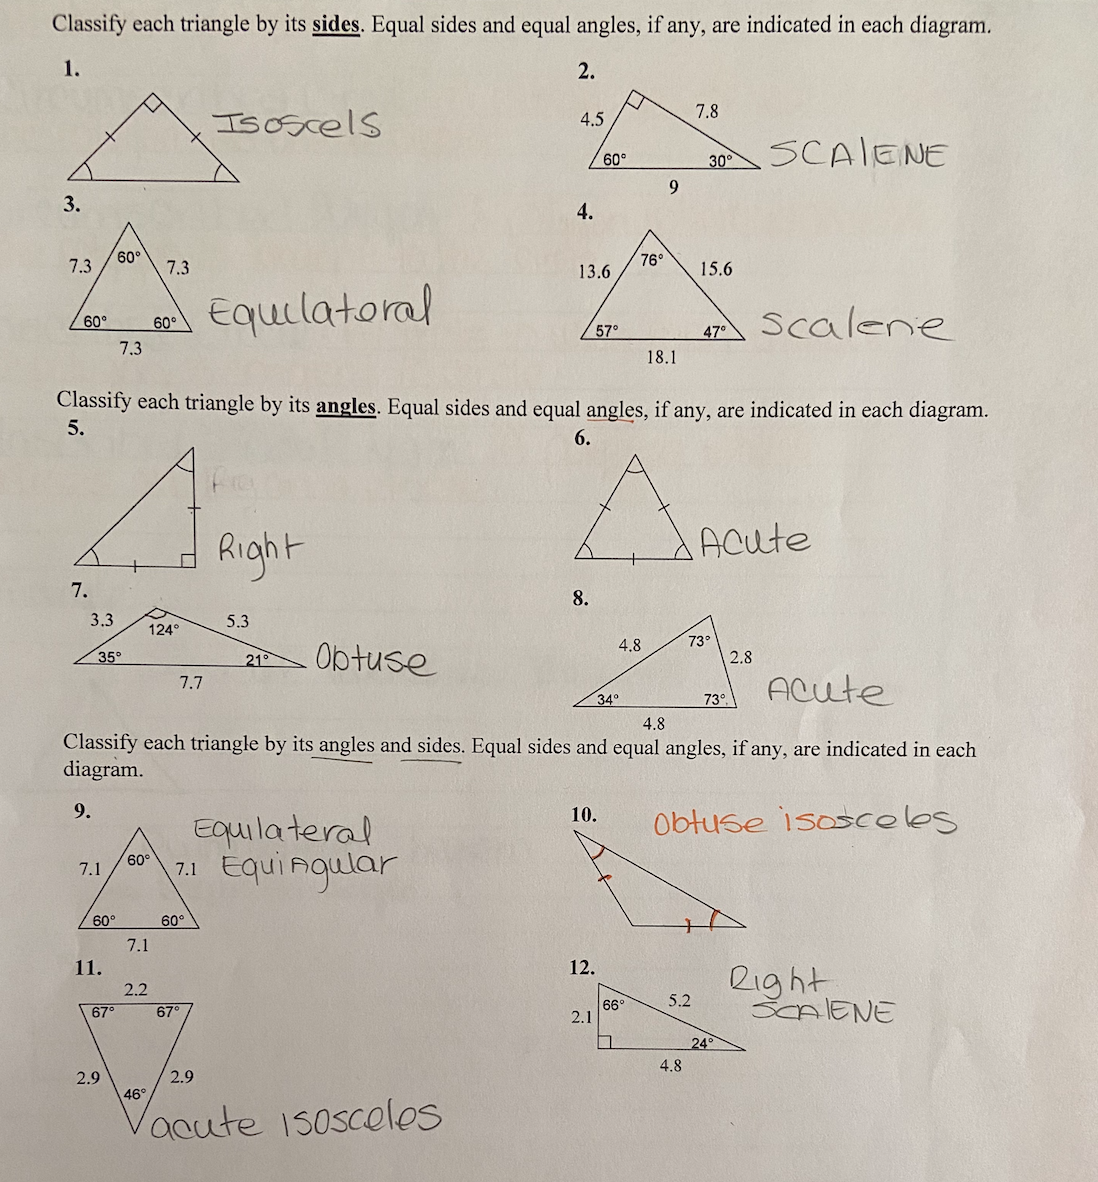 Classify each triangle by its sides. Equal sides and equal angles, if any, are indicated in each diagram.
1.
Isoscels
2.
4.5
7.8
60°
30°
9
SCAlENE
3.
60°
7.3
7.3
60°
60°
7.3
Equilateral
4.
76°
13.6
15.6
57°
47°
18.1
Scalene
Classify each triangle by its angles. Equal sides and equal angles, if any, are indicated in each diagram.
5.
Right
6.
Acute
7.
3.3
124°
5.3
35°
21°
7.7
Obtuse
8.
4.8
73°
2.8
34°
73°
4.8
Acute
Classify each triangle by its angles and sides. Equal sides and equal angles, if any, are indicated in each
diagram.
9.
60°
7.1
7.1
60°
60°
7.1
Equilateral
EquiAgular
10.
Obtuse isosceles
11.
2.2
67°
67°
2.9
2.9
46°
acute isosceles
12.
66°
2.1
5.2
24°
4.8
Right
SCAlENE